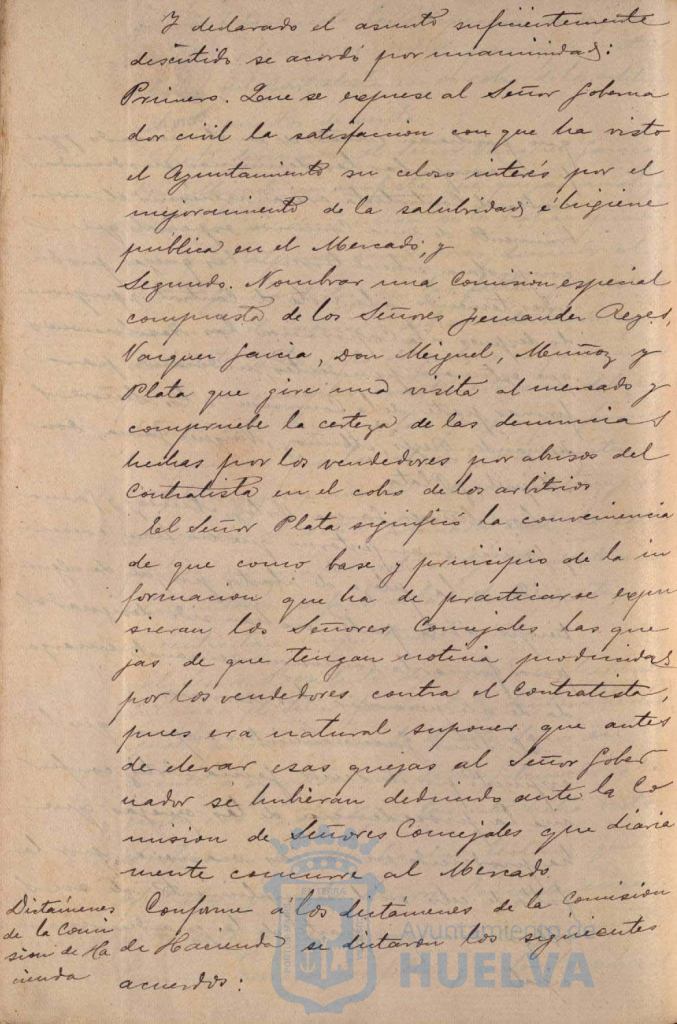 Y declarado el asunto suficientemente
discutido se acordó por unanimidad:
Primero. Que se exprese al Señor Goberna
dor civil la satisfaccion con que ha visto
el Ayuntamiento su celoso interés por el
mejoramiento de la salubridad é higiene
pública en el Mercado, y
Segundo. Nombrar una Comision especial
compuesta de los Señores Fernandez Reyes,
Vazquez Garcia, Don Miguel, Muñoz y
Plata que gire una visita al mercado y
compruebe la certeza de las denuncias
hechas por los vendedores por abusos del
Contratista en el cobro de los arbitrios
El Señor Plata significó la conveniencia
de que como base y principio de la in
formacion que ha de practicarse expu
sieran los Señores Concejales las que
jas de que tengan noticia producidas
por los vendedores contra el Contratista,
pues era natural suponer que antes
de elevar esas quejas al Señor Gober
nador se hubieran deducido ante la Co
mision de Señores Concejales que diaria
mente concurre al Mercado
Dictámenes
de la Comi
sion de Ha
cienda
Conforme á los dictámenes de la Comision
de Hacienda se dictaron los siguientes
acuerdos:
Ayuntamiento de
HUELVA